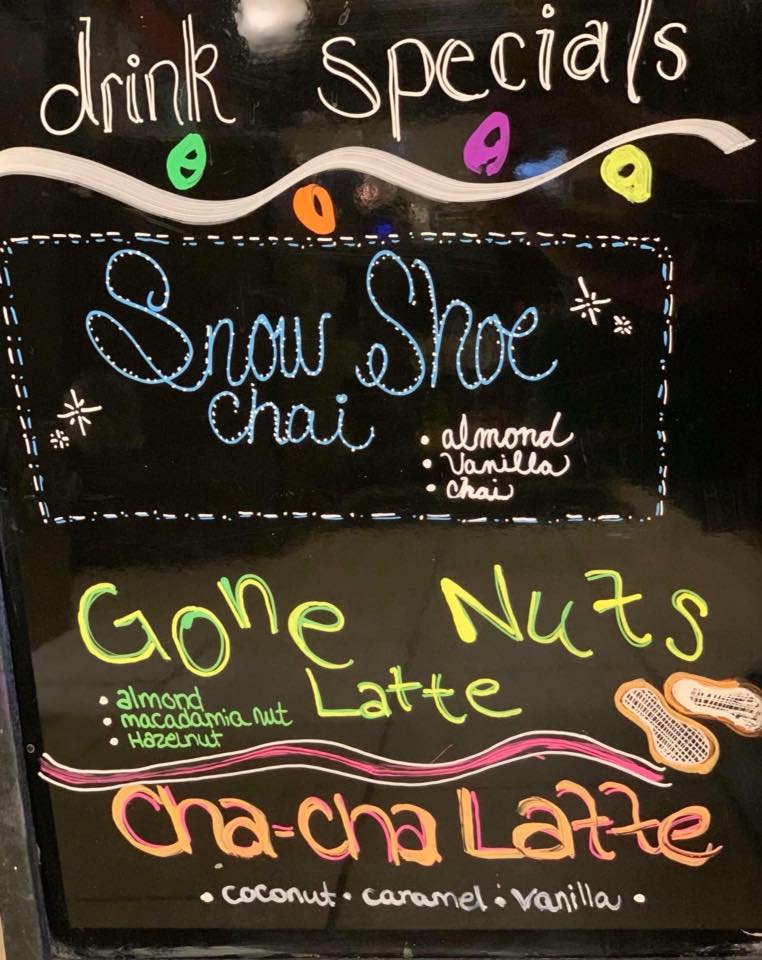 drink specials
Snow Shoe
chai
• almond
• Vanilla
• Chai
Gone Nuts
Latte
• almond
• macadamia nut
• Hazelnut
Cha-cha Latte
• coconut • caramel • vanilla •